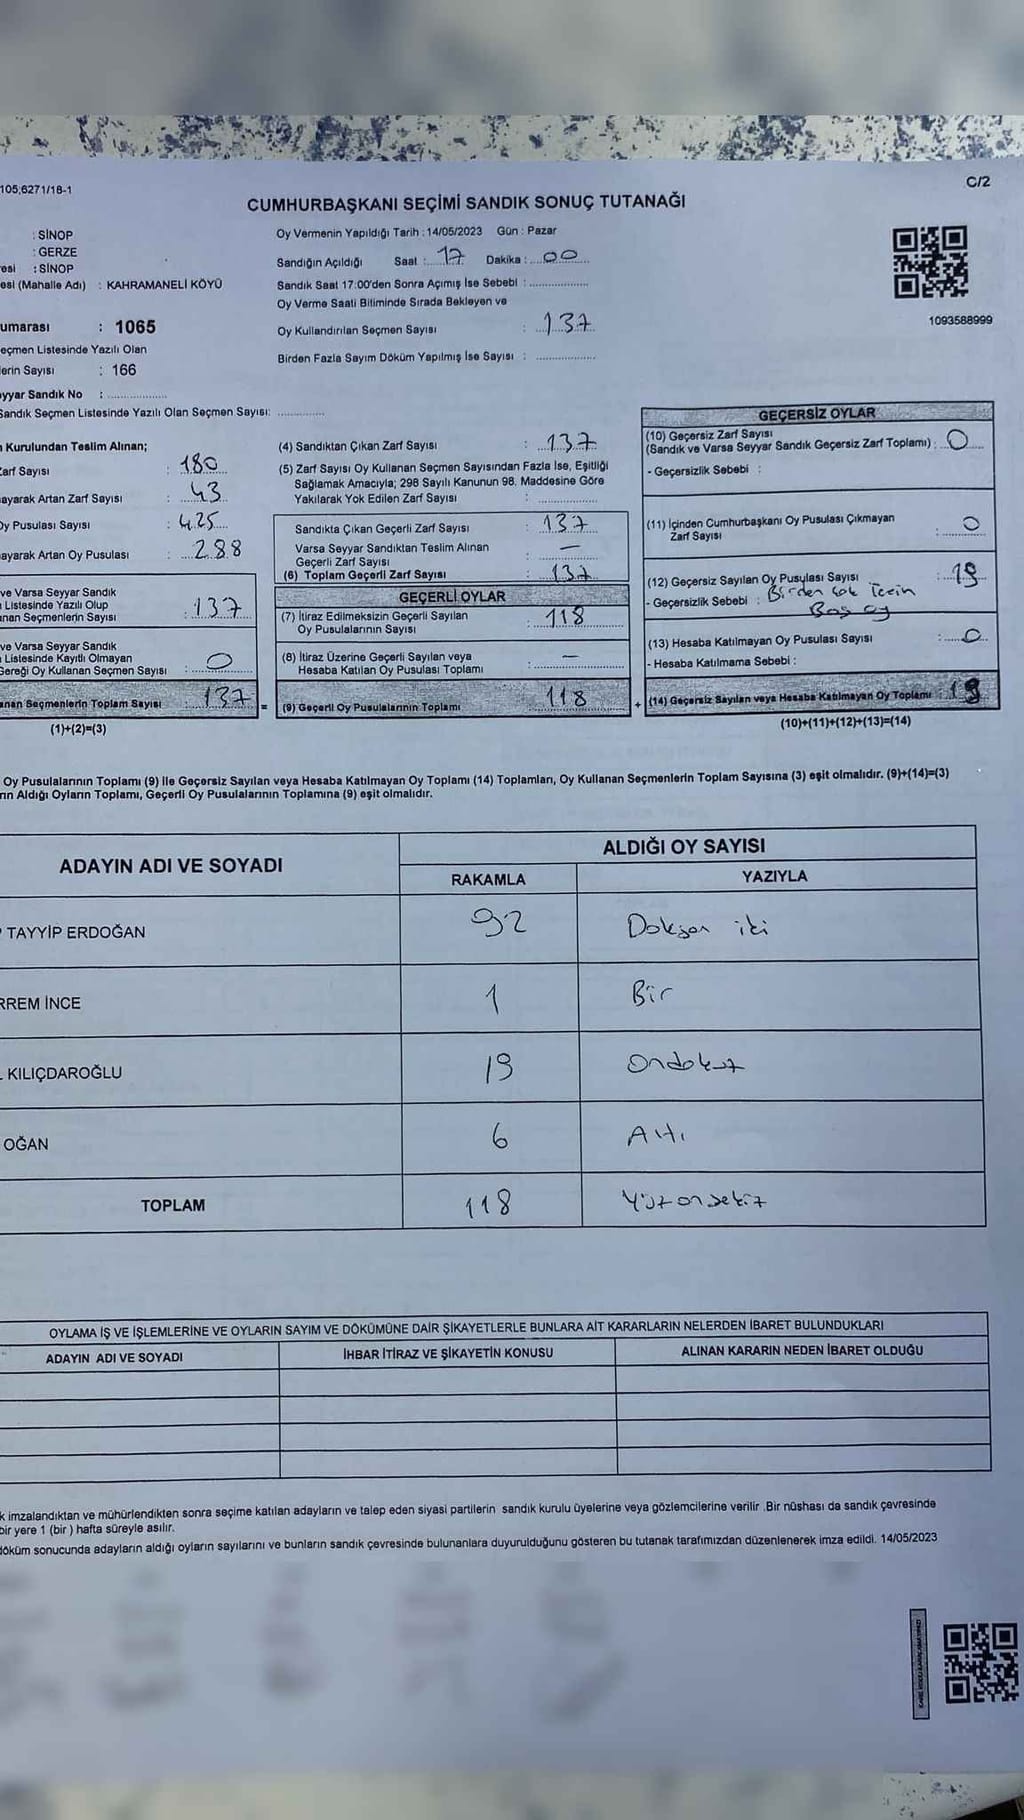 105;6271/18-1
C/2
CUMHURBAŞKANI SEÇİMİ SANDIK SONUÇ TUTANAĞI
: SİNOP
: GERZE
: SİNOP
esi (Mahalle Adı) : KAHRAMANELİ KÖYÜ
umarası : 1065
eçmen Listesinde Yazılı Olan
lerin Sayısı : 166
yyar Sandık No : ..................
Sandık Seçmen Listesinde Yazılı Olan Seçmen Sayısı: ..............
Oy Vermenin Yapıldığı Tarih : 14/05/2023 Gün : Pazar
Sandığın Açıldığı Saat : 17 Dakika : 00
Sandık Saat 17.00'den Sonra Açımış İse Sebebi : ..................
Oy Verme Saati Bitiminde Sırada Bekleyen ve
Oy Kullandırılan Seçmen Sayısı : 137
Birden Fazla Sayım Döküm Yapılmış İse Sayısı : ..................
1093588999
Kurulundan Teslim Alınan;
Zarf Sayısı : 180
ayarak Artan Zarf Sayısı : 43
Oy Pusulası Sayısı : 425
ayarak Artan Oy Pusulası : 288
ve Varsa Seyyar Sandık
Listesinde Yazılı Olup
anan Seçmenlerin Sayısı : 137
ve Varsa Seyyar Sandık
Listesinde Kayıtlı Olmayan
Gereği Oy Kullanan Seçmen Sayısı : 0
anan Seçmenlerin Toplam Sayısı : 137
(1)+(2)=(3)
(4) Sandıktan Çıkan Zarf Sayısı : 137
(5) Zarf Sayısı Oy Kullanan Seçmen Sayısından Fazla İse, Eşitliği
Sağlamak Amacıyla; 298 Sayılı Kanunun 98. Maddesine Göre
Yakılarak Yok Edilen Zarf Sayısı : ..............
Sandıkta Çıkan Geçerli Zarf Sayısı : 137
Varsa Seyyar Sandıktan Teslim Alınan
Geçerli Zarf Sayısı : —
(6) Toplam Geçerli Zarf Sayısı : 137
GEÇERLİ OYLAR
(7) İtiraz Edilmeksizin Geçerli Sayılan
Oy Pusulalarının Sayısı : 118
(8) İtiraz Üzerine Geçerli Sayılan veya
Hesaba Katılan Oy Pusulası Toplamı : —
= (9) Geçerli Oy Pusulalarının Toplamı 118
GEÇERSİZ OYLAR
(10) Geçersiz Zarf Sayısı
(Sandık ve Varsa Seyyar Sandık Geçersiz Zarf Toplamı) : 0
- Geçersizlik Sebebi :
(11) İçinden Cumhurbaşkanı Oy Pusulası Çıkmayan
Zarf Sayısı : 0
(12) Geçersiz Sayılan Oy Pusulası Sayısı : 19
- Geçersizlik Sebebi : Birden çok
Boş oy
(13) Hesaba Katılmayan Oy Pusulası Sayısı : 0
- Hesaba Katılmama Sebebi :
+ (14) Geçersiz Sayılan veya Hesaba Katılmayan Oy Toplamı : 19
(10)+(11)+(12)+(13)=(14)
Oy Pusulalarının Toplamı (9) ile Geçersiz Sayılan veya Hesaba Katılmayan Oy Toplamı (14) Toplamları, Oy Kullanan Seçmenlerin Toplam Sayısına (3) eşit olmalıdır. (9)+(14)=(3)
rın Aldığı Oyların Toplamı, Geçerli Oy Pusulalarının Toplamına (9) eşit olmalıdır.
ADAYIN ADI VE SOYADI
ALDIĞI OY SAYISI
RAKAMLA YAZIYLA
TAYYİP ERDOĞAN 92 Doksan iki
RREM İNCE 1 Bir
KILIÇDAROĞLU 19 Ondokuz
OĞAN 6 Altı
TOPLAM 118 Yüzonsekiz
OYLAMA İŞ VE İŞLEMLERİNE VE OYLARIN SAYIM VE DÖKÜMÜNE DAİR ŞİKAYETLERLE BUNLARA AİT KARARLARIN NELERDEN İBARET BULUNDUKLARI
ADAYIN ADI VE SOYADI İHBAR İTİRAZ VE ŞİKAYETİN KONUSU ALINAN KARARIN NEDEN İBARET OLDUĞU
k imzalandıktan ve mühürlendikten sonra seçime katılan adayların ve talep eden siyasi partilerin sandık kurulu üyelerine veya gözlemcilerine verilir .Bir nüshası da sandık çevresinde
bir yere 1 (bir ) hafta süreyle asılır.
döküm sonucunda adayların aldığı oyların sayılarını ve bunların sandık çevresinde bulunanlara duyurulduğunu gösteren bu tutanak tarafımızdan düzenlenerek imza edildi. 14/05/2023